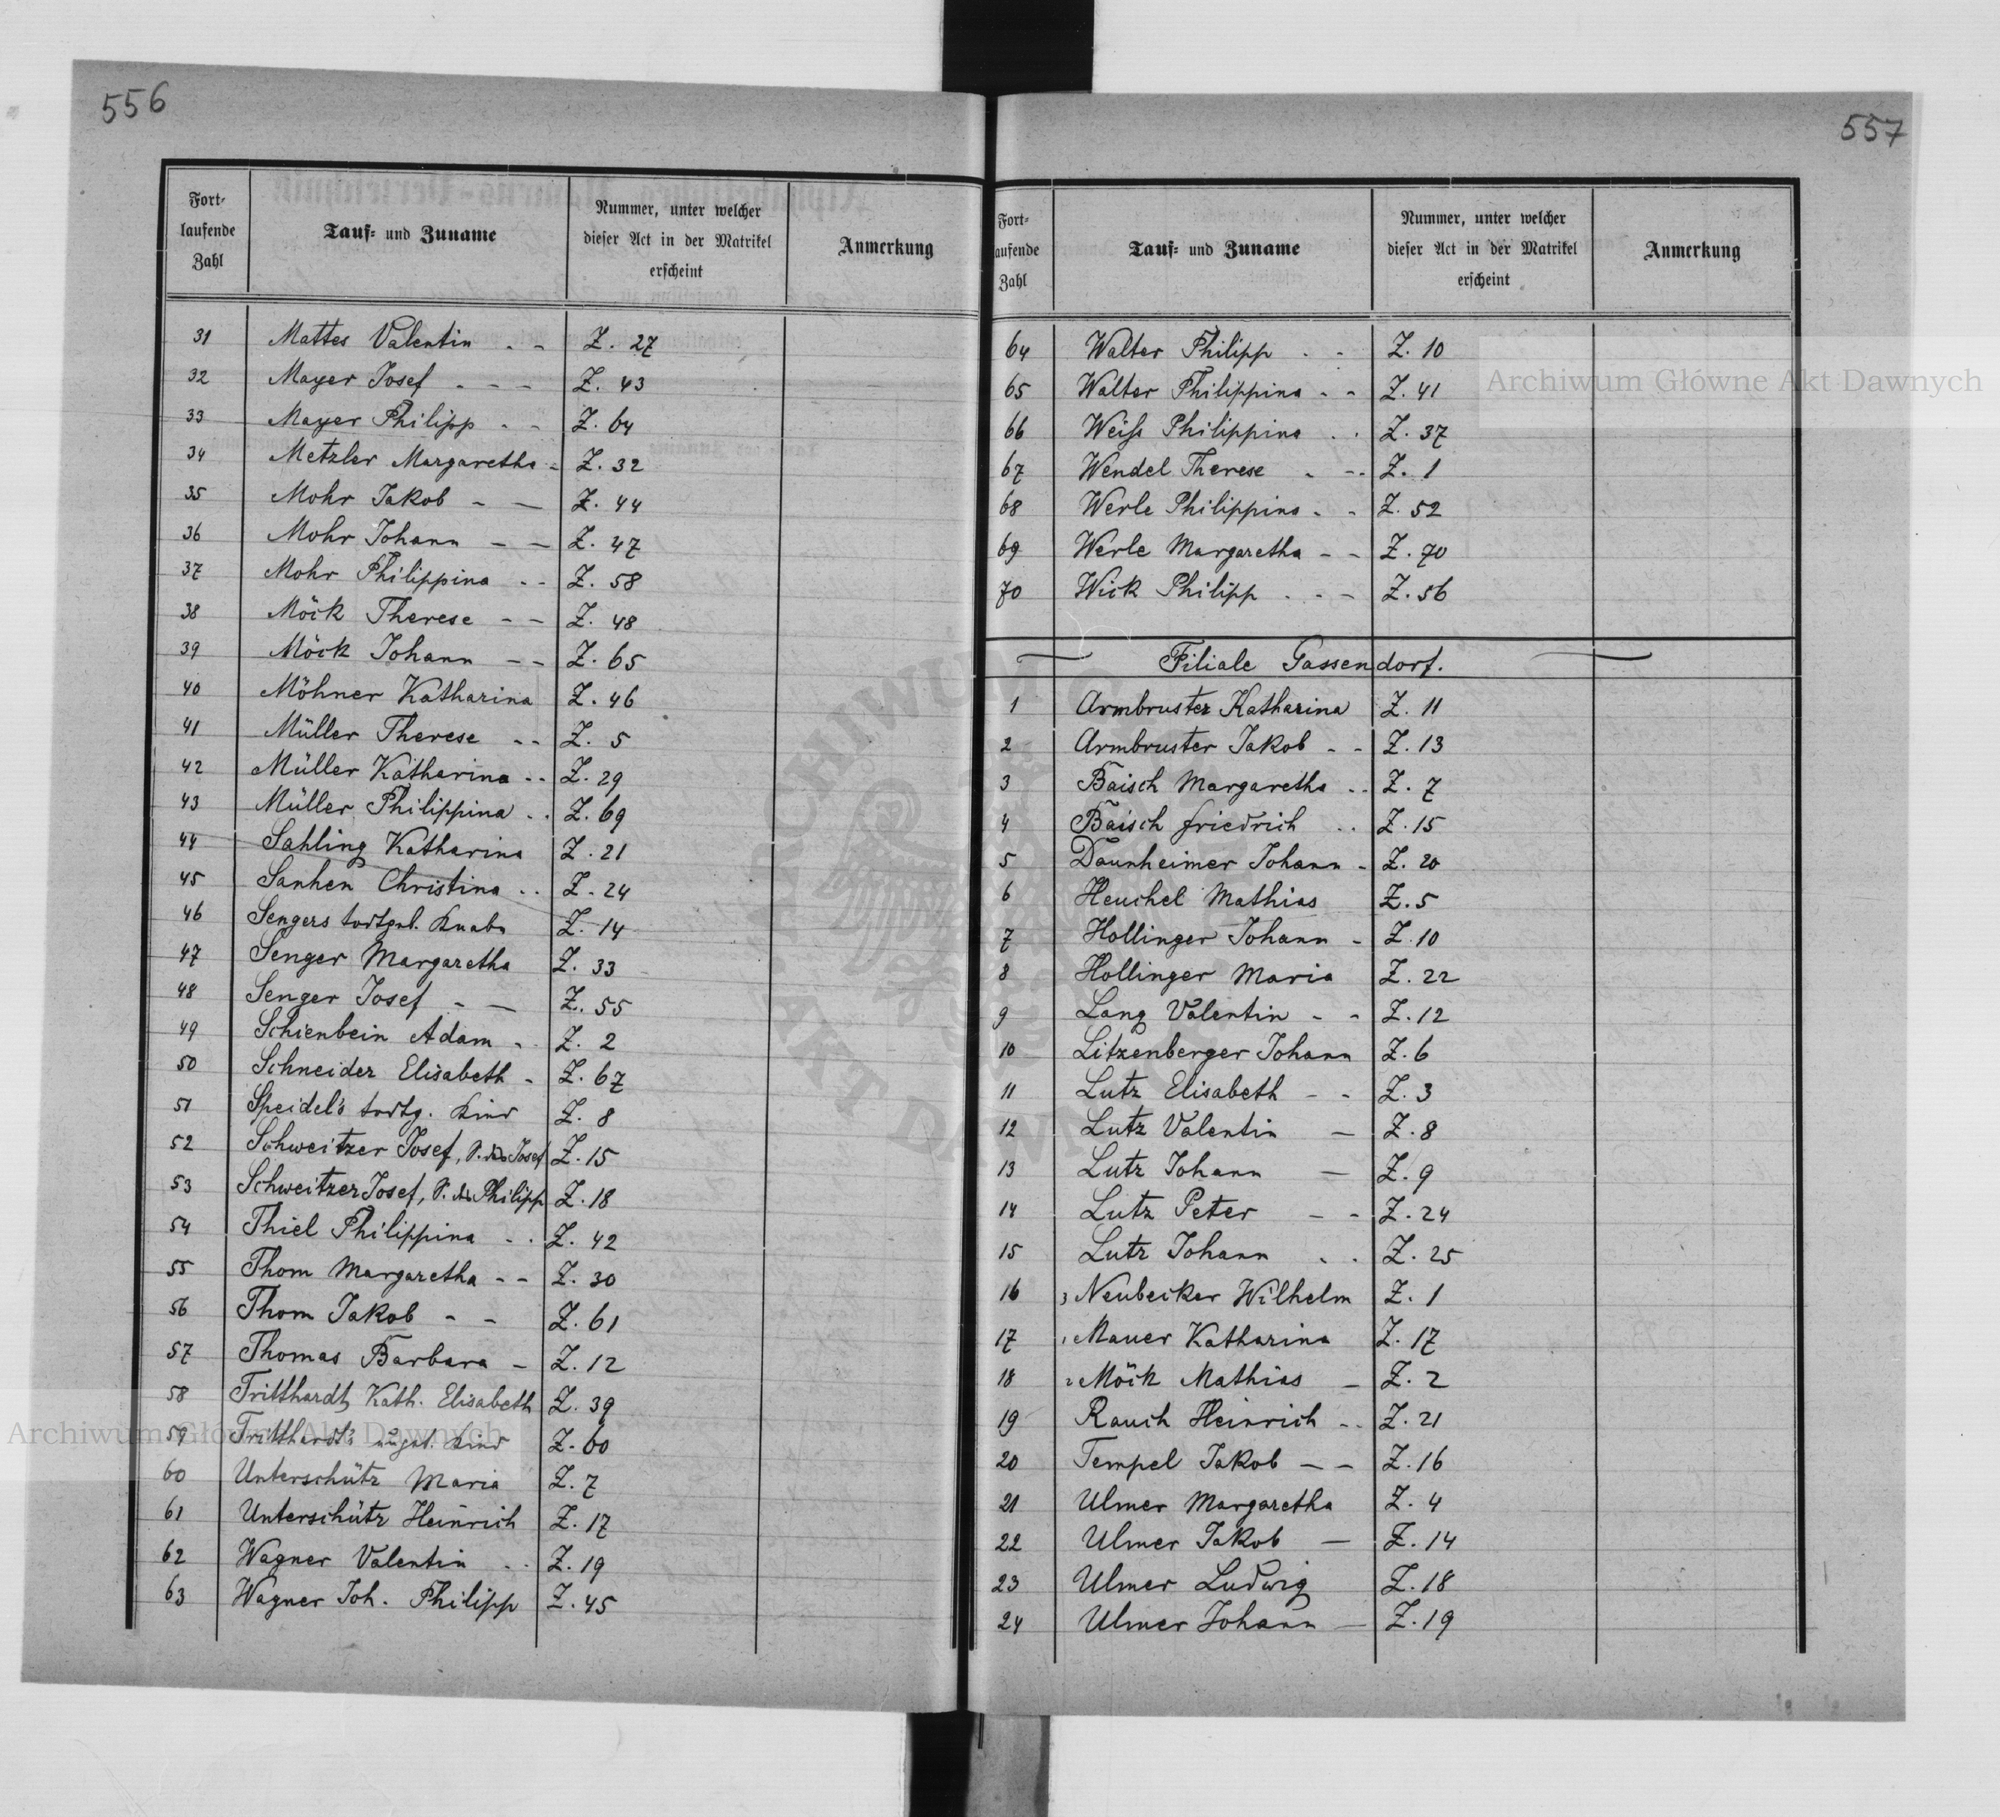 556
Fort-
laufende
Zahl
Tauf- und Zuname
Nummer, unter welcher
dieser Act in der Matrikel
erscheint
Anmerkung
31 Mattes Valentin - - Z. 27
32 Mayer Josef - - - Z. 43
33 Mayer Philipp - - Z. 64
34 Metzler Margaretha - Z. 32
35 Mohr Jakob - - Z. 44
36 Mohr Johann - - Z. 47
37 Mohr Philippina - - Z. 58
38 Möck Therese - - Z. 48
39 Möck Johann - - Z. 65
40 Möhner Katharina Z. 46
41 Müller Therese - - Z. 5
42 Müller Katharina - - Z. 29
43 Müller Philippina - - Z. 69
44 Sahling Katharina Z. 21
45 Sanhen Christina - - Z. 24
46 Sengers todtgeb. Knabe Z. 14
47 Senger Margaretha Z. 33
48 Senger Josef - - Z. 55
49 Schienbein Adam - Z. 2
50 Schneider Elisabeth - Z. 67
51 Speidel's todtg. Kind Z. 8
52 Schweitzer Josef, S. des Josef Z. 15
53 Schweitzer Josef, S. des Philipp Z. 18
54 Thiel Philippina - - Z. 42
55 Thom Margaretha - - Z. 30
56 Thom Jakob - - Z. 61
57 Thomas Barbara - Z. 12
58 Tritthardt Kath. Elisabeth Z. 39
59 Tritthardt's Kind Z. 60
60 Unterschütz Maria Z. 7
61 Unterschütz Heinrich Z. 17
62 Wagner Valentin - - Z. 19
63 Wagner Joh. Philipp Z. 45
557
Fort-
aufende
Zahl
Tauf- und Zuname
Nummer, unter welcher
dieser Act in der Matrikel
erscheint
Anmerkung
64 Walter Philipp - - Z. 10
65 Walter Philippina - - Z. 41
66 Weiß Philippina - - Z. 37
67 Wendel Therese - - Z. 1
68 Werle Philippina - - Z. 52
69 Werle Margaretha - - Z. 70
70 Wick Philipp - - - Z. 56
Filiale Gassendorf.
1 Armbruster Katharina Z. 11
2 Armbruster Jakob - - Z. 13
3 Baisch Margaretha - - Z. 7
4 Baisch Friedrich - - Z. 15
5 Daunheimer Johann - Z. 20
6 Heuchel Mathias Z. 5
7 Hollinger Johann - Z. 10
8 Hollinger Maria Z. 22
9 Lang Valentin - - Z. 12
10 Litzenberger Johann Z. 6
11 Lutz Elisabeth - - Z. 3
12 Lutz Valentin - Z. 8
13 Lutz Johann - Z. 9
14 Lutz Peter - - Z. 24
15 Lutz Johann - - Z. 25
16 3 Neubecker Wilhelm Z. 1
17 1 Mauer Katharina Z. 17
18 2 Möck Mathias - Z. 2
19 Rauch Heinrich - - Z. 21
20 Tempel Jakob - - Z. 16
21 Ulmer Margaretha Z. 4
22 Ulmer Jakob - Z. 14
23 Ulmer Ludwig Z. 18
24 Ulmer Johann - Z. 19
Archiwum Główne Akt Dawnych
Archiwum Główne Akt Dawnych